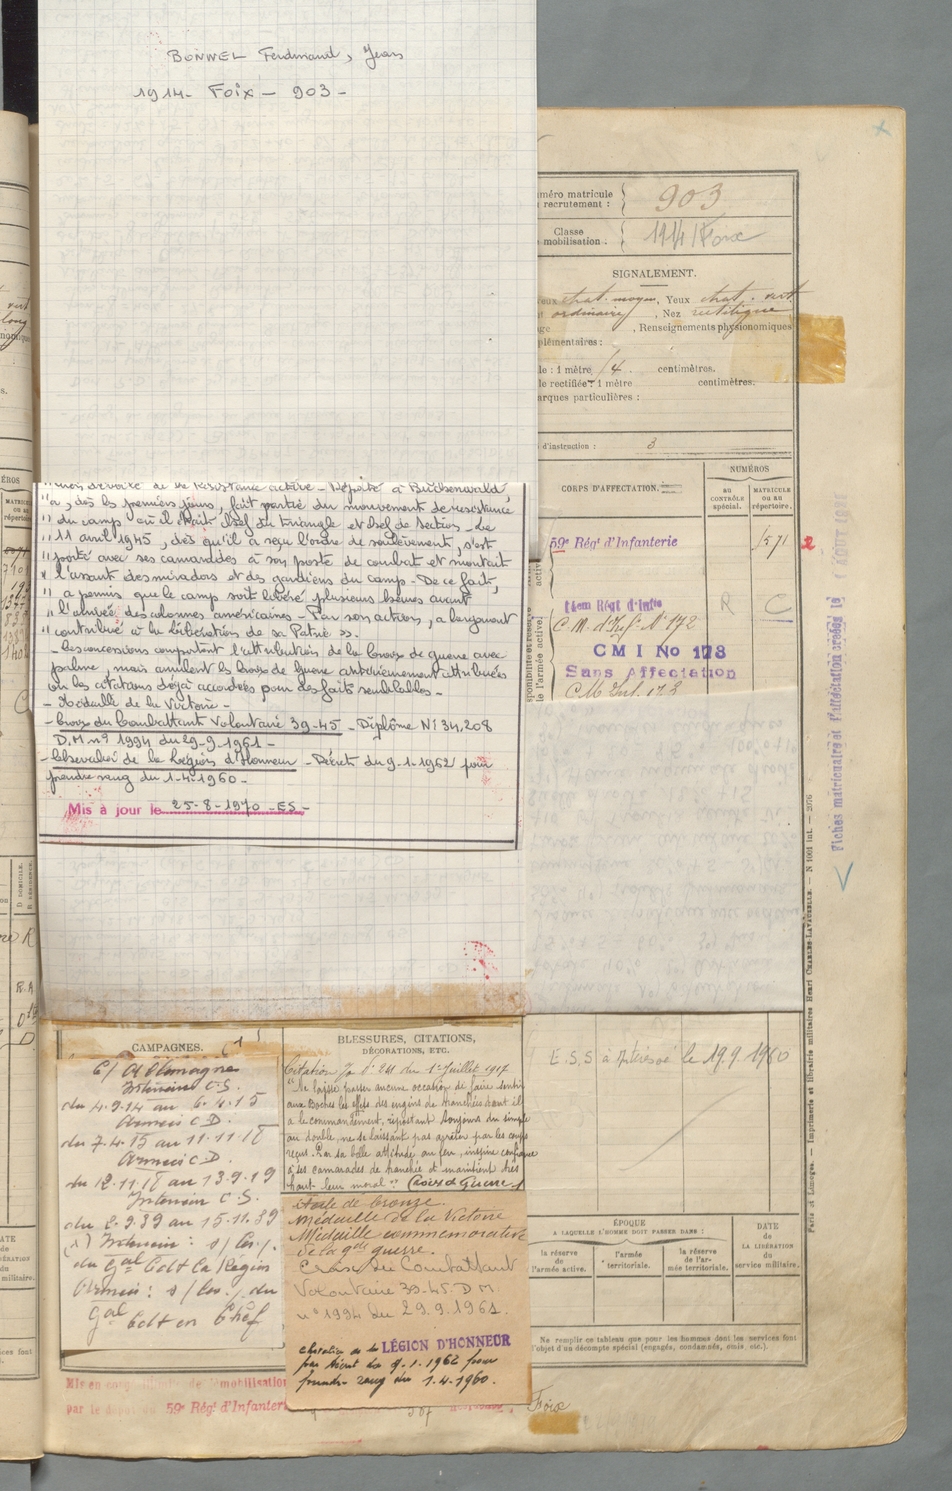 BONNEL Ferdinand, Jean
1914 - Foix - 903 -
méro matricule
recrutement :
903
Classe
mobilisation :
1914 / Foix
SIGNALEMENT.
eux chat. moyen, Yeux chat. vert
ordinaire, Nez rectiligne
, Renseignements physionomiques
plémentaires :
le : 1 mètre centimètres.
le rectifiée : 1 mètre centimètres.
arques particulières :
d'instruction : 3
CORPS D'AFFECTATION.
NUMÉROS
AU CONTRÔLE spécial.
MATRICULE OU AU répertoire.
59e Régt d'Infanterie
1571
C.M. d'Inf. No 172
R C
CMI No 178
Sans Affectation
C M Inf. 178
Fiches matriculaire et d'affectation créées le AOUT
Paris et Limoges. — Imprimerie et librairie militaires Henri CHARLES-LAVAUZELLE. — N 1001 int. — 2076
" de la Résistance active - Déporté à Buchenwald,
" a, dès les premiers jours, fait partie du mouvement de résistance
" du camp où il était chef du triangle et chef de section - Le
" 11 avril 1945, dès qu'il a reçu l'ordre de soulèvement, s'est
" porté avec ses camarades à son poste de combat et montait
" à l'assaut des miradors et des gardiens du camp - De ce fait,
" a permis que le camp soit libéré plusieurs heures avant
" l'arrivée des colonnes américaines - Par son action, a largement
" contribué à la libération de sa Patrie ».
- Les concessions comportent l'attribution de la Croix de guerre avec
palme, mais annulent les Croix de Guerre antérieurement attribuées
ou les citations déjà accordées pour des faits semblables -
- Médaille de la Victoire -
- Croix du Combattant Volontaire 39-45 - Diplôme N° 34,208
D.M. n° 1994 du 29-9-1961 -
- Chevalier de la Légion d'Honneur - Décret du 9-1-1962 pour
prendre rang du 1-4-1960 -
Mis à jour le 25-8-1970 - ES -
CAMPAGNES. (1)
C/ Allemagne
Intérieur C.S.
du 4.9.14 au 6.4.15
Armées C D.
du 7.4.15 au 11.11.18
Armées C.D.
du 12.11.18 au 13.9.19
Intérieur C S.
du 2.9.39 au 15.11.39
Intérieur :
du Gal Cdt la Région
Armées : du
Gal Cdt en Chef
BLESSURES, CITATIONS,
DÉCORATIONS, ETC.
Citation du 1er Juillet 1917
"Ne laisse passer aucune occasion de faire sentir
aux Boches les effets des engins de tranchées dont il
a le commandement, ripostant toujours du simple
au double, ne se laissant pas arrêter par les coups
reçus. Par sa belle attitude au feu, inspire confiance
à ses camarades de tranchée et maintient très
haut leur moral" (Croix de Guerre)
étoile de bronze.
Médaille de la Victoire
Médaille commémorative
de la gde guerre.
Croix du Combattant
Volontaire 39-45. D.M.
n° 1994 du 29.9.1961.
chevalier de la LÉGION D'HONNEUR
par décret du 9.1.1962 pour
prendre rang du 1.4.1960.
E.S.S à Intéressé le 19.9.1960
ÉPOQUE
A LAQUELLE L'HOMME DOIT PASSER DANS :
la réserve de l'armée active.
l'armée territoriale.
la réserve de l'armée territoriale.
DATE de LA LIBÉRATION du service militaire.
Ne remplir ce tableau que pour les hommes dont les services font
l'objet d'un décompte spécial (engagés, condamnés, omis, etc.).
par le dépôt du 59e Régt d'Infanterie
Foix